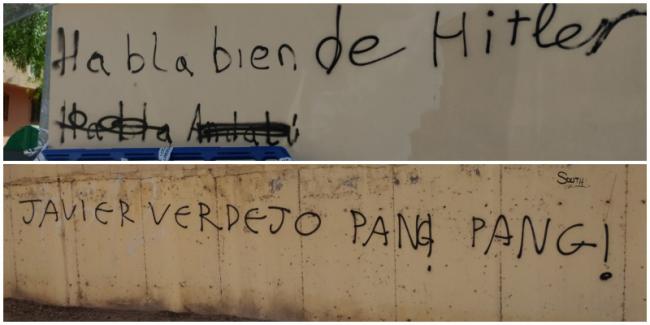 Habla bien de Hitler
Habla Andalú
SOUTH
JAVIER VERDEJO PANG! PANG!